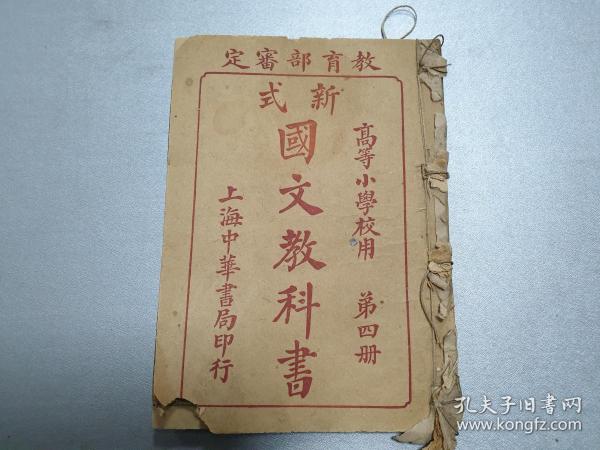 教育部審定
新式
高等小學校用 第四册
國文教科書
上海中華書局印行
孔夫子旧书网
www.kongfz.com